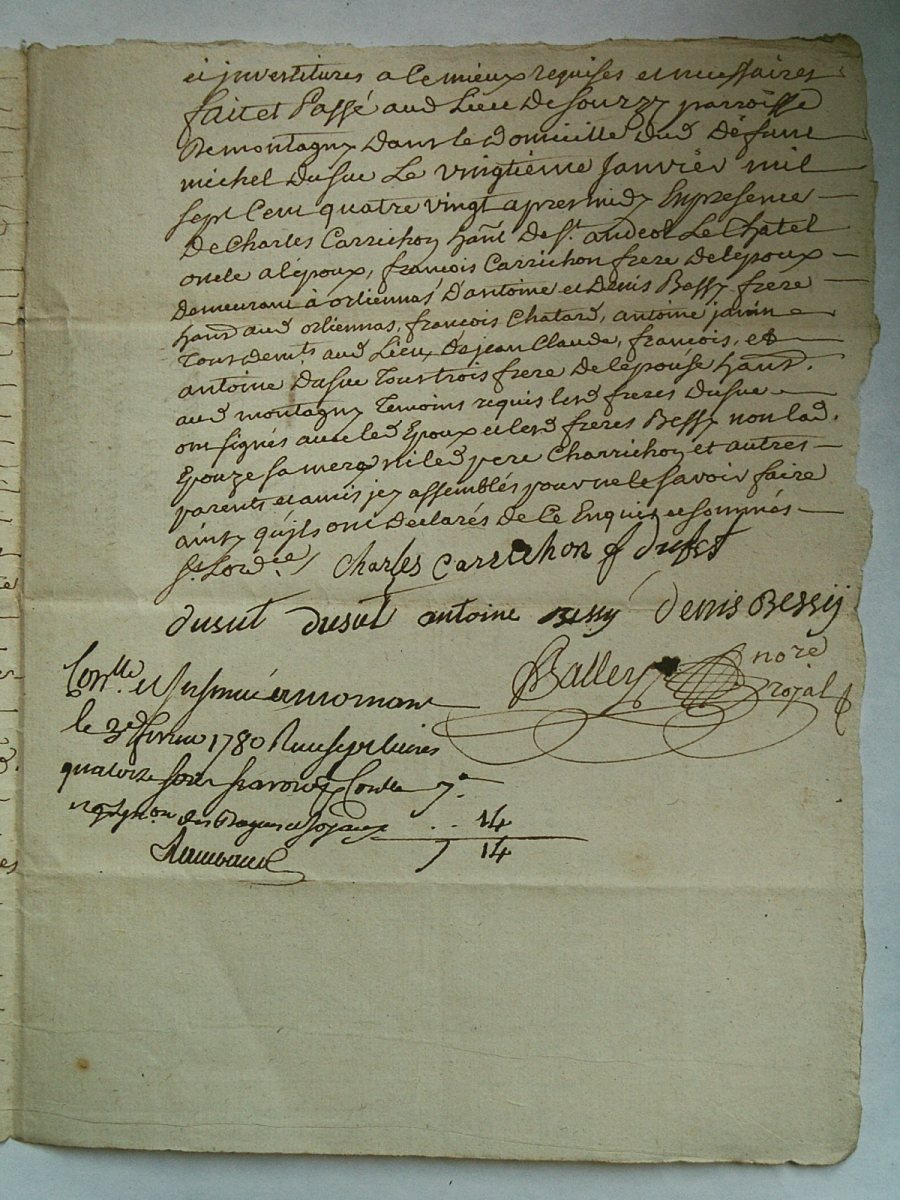 et investitures a ce mieux requises et necessaires
fait et Passé aud Lieu de Sourzy parroisse
De montagny Dans le Domicille dud Défunt
michel Dusuc Le vingtième Janvier mil
sept Cent quatre vingt apres midy En presence
De Charles Carrichon hant De St. andeol Le Chatel
oncle a lépoux, françois Carrichon frere De lepoux
Demeurant à orliennas D'antoine et Denis Bessy frere
hants aud orliennas, françois Chatard, antoine janin
Tous demts aud Lieu, De jean Claude, françois, et
antoine Dusuc Tous trois frere De lépouse hants
aud montagny Temoins requis lesd freres Dusuc
ont signés avec led Epoux et lesd freres Bessy non lad.
Epouze sa mere ni led pere Charrichon et autres
parents et amis jcy assemblés pour ne le savoir faire
ainsy qu'ils ont Declarés de Ce Enquis et sommés
St. Lordce
Charles Carrichon f dusuc
dusut dusut antoine Bessy Denis Bessy
Balley nore
royal
Conlle et Insinué a mornant
le 3e fevrier 1780 Reçu sept livres
quatorze sols savoir Conlle 7
des Bagues et Joyaux .. 14
7 14